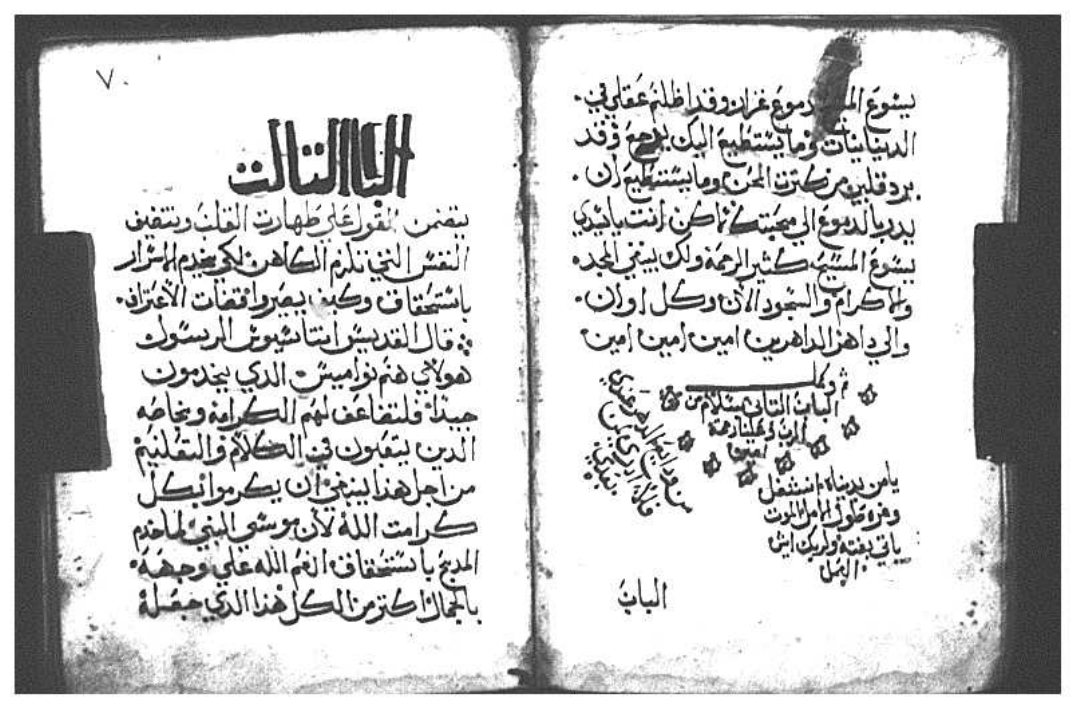 يسوع المسيح دموع غزار وقد اظلم عقلي في
الدينايات وما يستطيع اليك يرجع وقد
برد قلبي من كترت المحن وما يستطيع ان
يدر بالدموع الي محبتك لاكن انت ياسيدي
يسوع المسيح كثير الرحمة ولك ينبغي المجد
والاكرام والسجود الان وكل اوان
والي داهر الداهرين امين امين امين
ثم وكمل
الباب التاني بسلام من
الرب وعلينا رحمة
امين
يامن بدنياه انشتغل
وغره طول الامل الموت
ياتي بغتة
العمل
الباب
٧٠
الباب التالت
يتضمن القول علي طهارت القلب وتتقيف
النفس التي تلزم الكاهن لكي يخدم الاسرار
باستحقاق وكيف يصير واقضات الاعتراف
قال القديس اتناسيوس الرسول
هولاي هم نواميس الدي يخدمون
جيداً فلتضاعف لهم الكرامة وبخاصة
الدين يتعبون في الكلام والتعليم
من اجل هدا ينبغي ان يكرموا بكل
كرامت الله لان موسي النبي لما خدم
المدبح باستحقاق انعم الله علي وجهه
بالجمال اكتر من الكل هدا الدي جعله